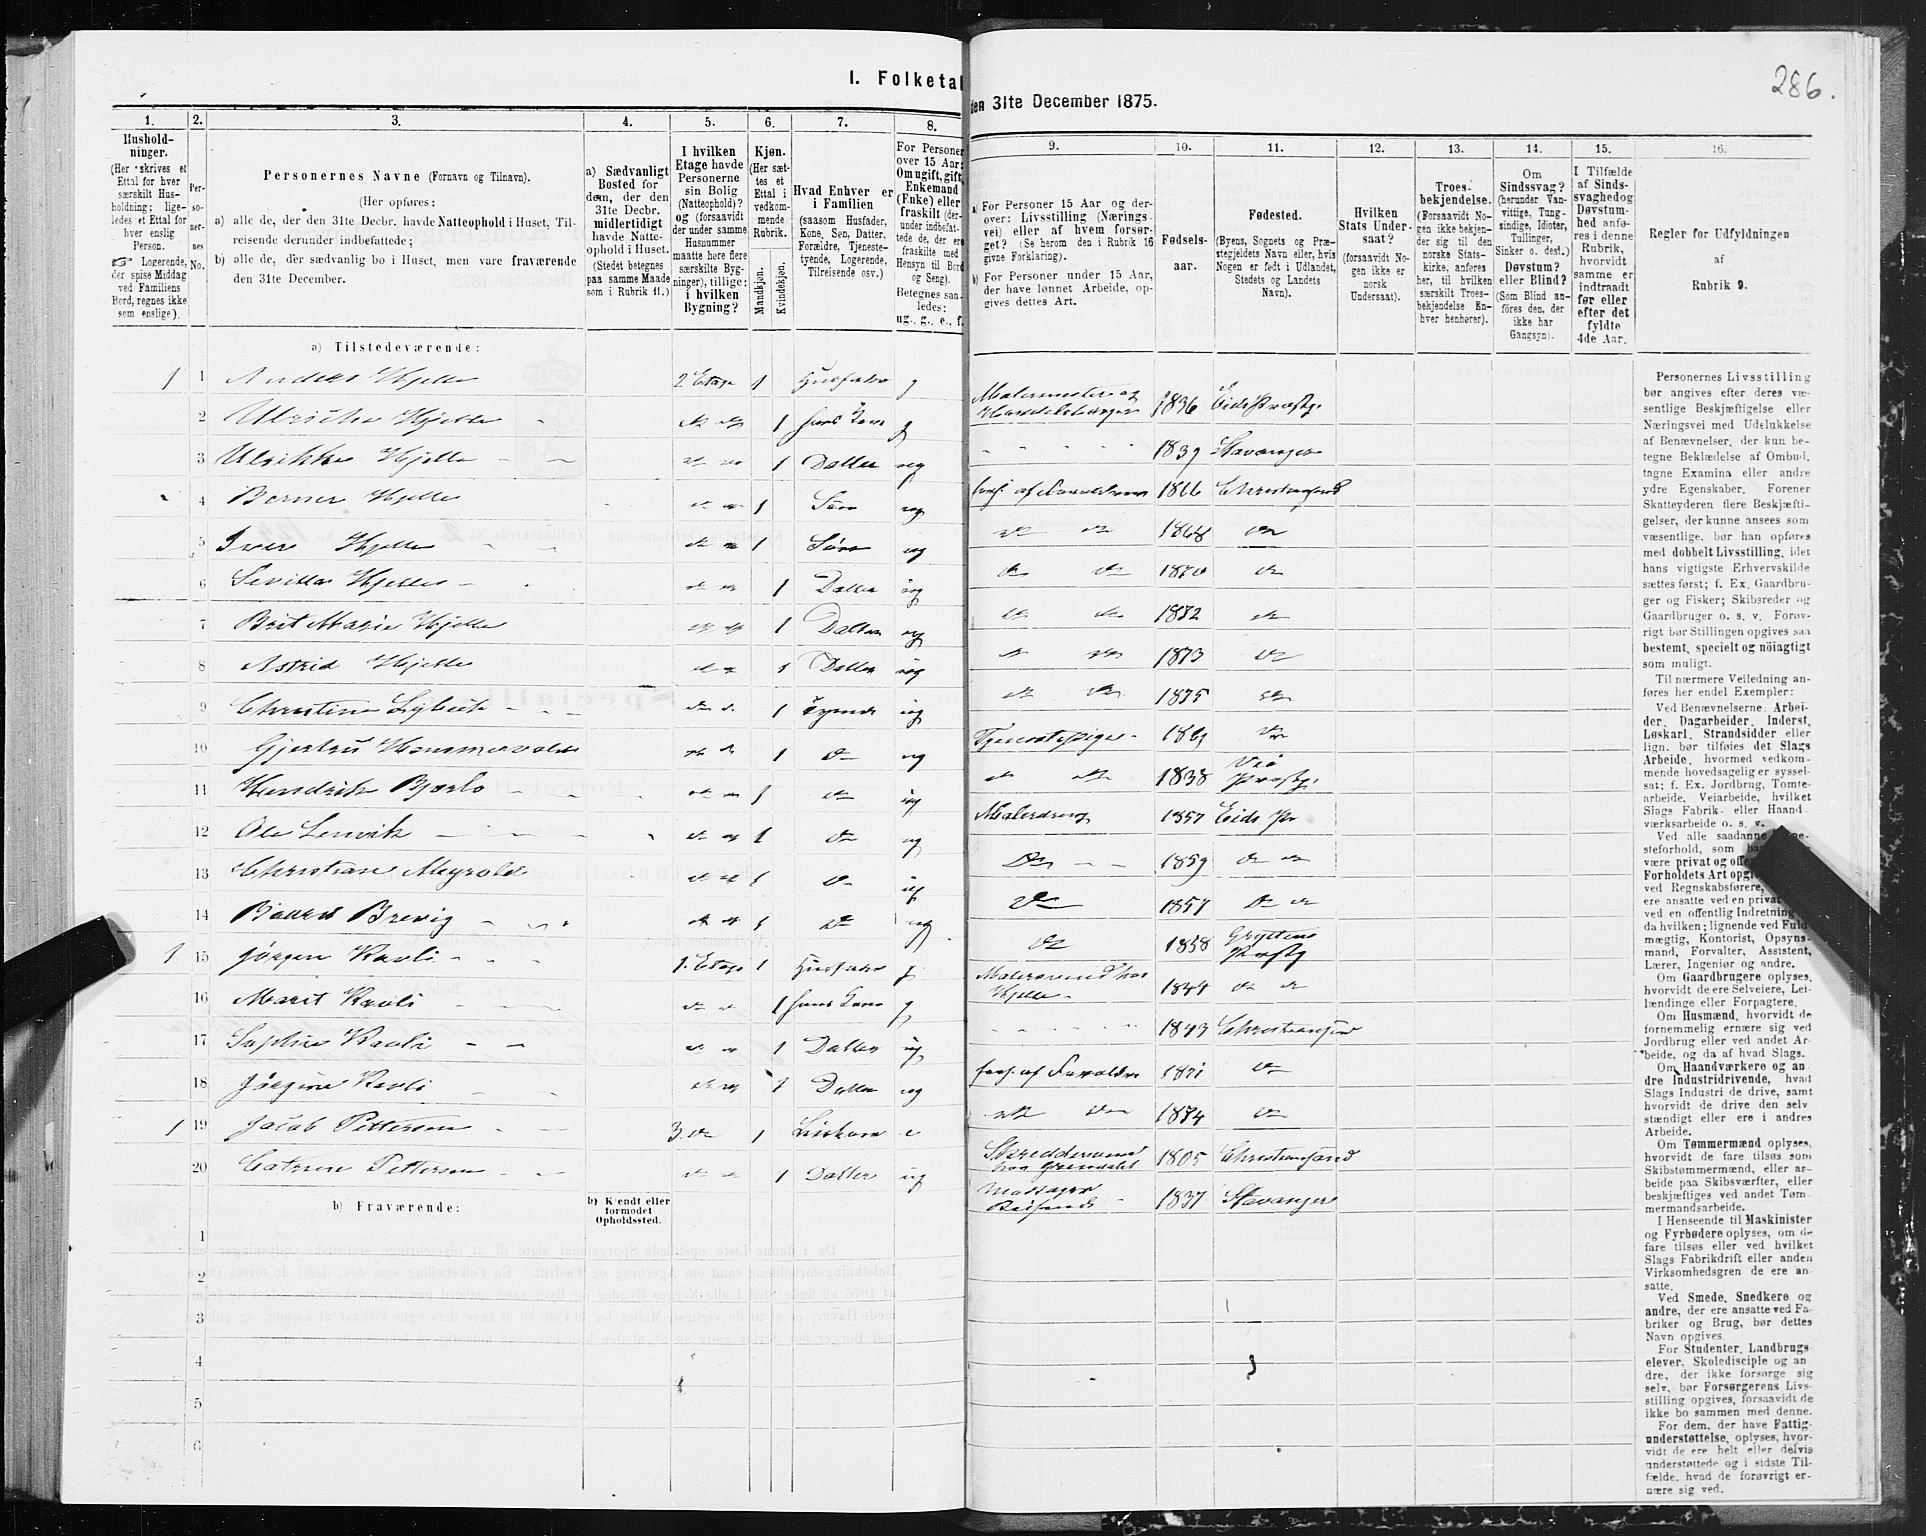 I. Folketal
den 31te December 1875.
286.
1. 2. 3. 4. 5. 6. 7. 8. 9. 10. 11. 12. 13. 14. 15. 16.
Hushold-
ninger.
(Her skrives et
Ettal for hver
særskilt Hus-
holdning; lige-
ledes et Ettal for
hver enslig
Person.
☞ Logerende,
der spise Middag
ved Familiens
Bord, regnes ikke
som enslige).
Per-
so-
ner-
nes
No.
Personernes Navne (Fornavn og Tilnavn).
(Her opføres:
a) alle de, der den 31te Decbr. havde Natteophold i Huset, Til-
reisende derunder indbefattede;
b) alle de, der sædvanlig bo i Huset, men vare fraværende
den 31te December.
a) Sædvanligt
Bosted for
dem, der den
31te Decbr.
midlertidigt
havde Natte-
ophold i Huset.
(Stedet betegnes
paa samme Maade
som i Rubrik 11.)
I hvilken
Etage havde
Personerne
sin Bolig
(Natteophold)?
og (forsaavidt
der under samme
Husnummer
maatte høre flere
særskilte Byg-
ninger), tillige:
i hvilken
Bygning?
Kjøn.
(Her sæt-
tes et
Ettal i
vedkom-
mende
Rubrik.
Mandkjøn.
Kvindekjøn.
Hvad Enhver er
i Familien
(saasom Husfader,
Kone, Søn, Datter,
Forældre, Tjeneste-
tyende, Logerende,
Tilreisende osv.)
For Personer
over 15 Aar:
Om ugift, gift,
Enkemand
(Enke) eller
fraskilt (der-
under indbefat-
tede de, der ere
fraskilte med
Hensyn til Bord
og Seng).
Betegnes saa-
ledes:
ug., g., e., f.
a) For Personer 15 Aar og der-
over: Livsstilling (Nærings-
vei) eller af hvem forsør-
get? (Se herom den i Rubrik 16
givne Forklaring).
b) For Personer under 15 Aar,
der have lønnet Arbeide, op-
gives dettes Art.
Fødsels-
aar.
Fødested.
(Byens, Sognets og Præ-
stegjeldets Navn eller, hvis
Nogen er født i Udlandet,
Stedets og Landets
Navn).
Hvilken
Stats Under-
saat?
(forsaavidt No-
gen ikke er
norsk
Undersaat).
Troes-
bekjendelse.
(Forsaavidt No-
gen ikke bekjen-
der sig til den
norske Stats-
kirke, anføres
her, til hvilken
særskilt Troes-
bekjendelse En-
hver henhører).
Om
Sindssvag?
(herunder Van-
vittige, Tung-
sindige, Idioter,
Tullinger,
Sinker o. desl.)
Døvstum?
eller Blind?
(Som Blind an-
føres den, der
ikke har
Gangsyn).
I Tilfælde
af Sinds-
svaghed og
Døvstum-
hed anfø-
res i denne
Rubrik,
hvorvidt
samme er
indtraadt
før eller
efter det
fyldte
4de Aar.
Regler for Udfyldningen
af
Rubrik 9.
a) Tilstedeværende:
1 1 Anders Hjelle 2 Etage 1 Husfader g Malermester og Handelsborger 1836 Eids Præstg.
2 Ulricke Hjelle do do 1 hans Kone g 1839 Stavanger
3 Ulrikke Hjelle do do 1 Datter ug fors. af Forældrene 1866 Christiansund
4 Berner Hjelle do do 1 Søn ug do do 1868 do
5 Iver Hjelle do do 1 Søn ug do do 1870 do
6 Sevilla Hjelle do do 1 Datter ug do do 1872 do
7 Brit Marie Hjelle do do 1 Datter ug do do 1873 do
8 Astrid Hjelle do do 1 Datter ug do do 1875 do
9 Christine Lybeck do do 1 Tyende ug Tjenestepige 1861 do
10 Gjertru Hammervold do do 1 do ug do do 1838 Veø Præstg.
11 Hendrik Bjørlo do do 1 do ug Malerdreng 1857 Eids Pr
12 Ole Lervik do do 1 do ug do 1859 do do
13 Christian Myrold do do 1 do ug do 1857 do do
14 Brevig do do 1 do ug do 1858 Gryttens Præstg
1 15 Jørgen Kavli 1. Etage 1 Husfader g Malersvend hos Hjelle 1844 do do
16 Marit Kavli do do 1 hans Kone g 1843 Christiansund
17 Sophie Kavli do do 1 Datter ug fors. af Forældre 1871 do
18 Jørgine Kavli do do 1 Datter ug do do 1874 do
1 19 Jacob Pettersen 3. do 1 e Skreddersvend hos 1805 Christiansand
20 Catrine Pettersen do do 1 Datter ug 1837 Stavanger
b) Fraværende:
b) Kjendt eller
formodet
Opholdssted.
1
2
3
4
5
6
Personernes Livsstilling
bør angives efter deres væ-
sentlige Beskjæftigelse eller
Næringsvei med Udelukkelse
af Benævnelser, der kun be-
tegne Beklædelse af Ombud,
tagne Examina eller andre
ydre Egenskaber. Forener
Skatteyderen flere Beskjæfti-
gelser, der kunne ansees som
væsentlige, bør han opføres
med dobbelt Livsstilling, idet
hans vigtigste Erhvervskilde
sættes først; f. Ex. Gaardbru-
ger og Fisker; Skibsreder og
Gaardbruger o. s. v. Forøv-
rigt bør Stillingen opgives saa
bestemt, specielt og nöiagtigt
som muligt.
Til nærmere Veiledning an-
føres her endel Exempler:
Ved Benævnelserne: Arbei-
der, Dagarbeider, Inderst,
Løskarl, Strandsidder eller
lign. bør tilføies det Slags
Arbeide, hvormed vedkom-
mende hovedsagelig er syssel-
sat; f. Ex. Jordbrug, Tomte-
arbeide, Veiarbeide, hvilket
Slags Fabrik- eller Haand-
værksarbeide o. s. v.
Ved alle saadanne
steforhold, som
være privat og
Forholdets Art
ved Regnskabsførere,
ere ansatte ved en privat
ved en offentlig Indretning
da hvilken; lignende ved Fuld-
mægtig, Kontorist, Opsyns-
mand, Forvalter, Assistent,
Lærer, Ingeniør og andre.
Om Gaardbrugere oplyses,
hvorvidt de ere Selveiere, Lei-
lændinge eller Forpagtere.
Om Husmænd, hvorvidt de
fornemmelig ernære sig ved
Jordbrug eller ved andet Ar-
beide, og da af hvad Slags.
Om Haandværkere og an-
dre Industridrivende, hvad
Slags Industri de drive, samt
hvorvidt de drive den selv-
stændigt eller ere i andres
Arbeide.
Om Tømmermænd oplyses,
hvorvidt de fare tilsøs som
Skibstømmermænd, eller ar-
beide paa Skibsværfter, eller
beskjæftiges ved andet Tøm-
mermandsarbeide.
I Henseende til Maskinister
og Fyrbødere oplyses, om de
fare tilsøs eller ved hvilket
Slags Fabrikdrift eller anden
Virksomhedsgren de ere an-
satte.
Ved Smede, Snedkere og
andre, der ere ansatte ved Fa-
briker og Brug, bør dettes
Navn opgives.
For Studenter, Landbrugs-
elever, Skoledisciple og an-
dre, der ikke forsørge sig
selv, bør Forsørgerens Livs-
stilling opgives, forsaavidt de
ikke bo sammen med denne.
For dem, der have Fattig-
understøttelse, oplyses, hvor-
vidt de ere helt eller delvis
understøttede og i sidste Til-
fælde, hvad de forøvrigt er-
nære sig ved.